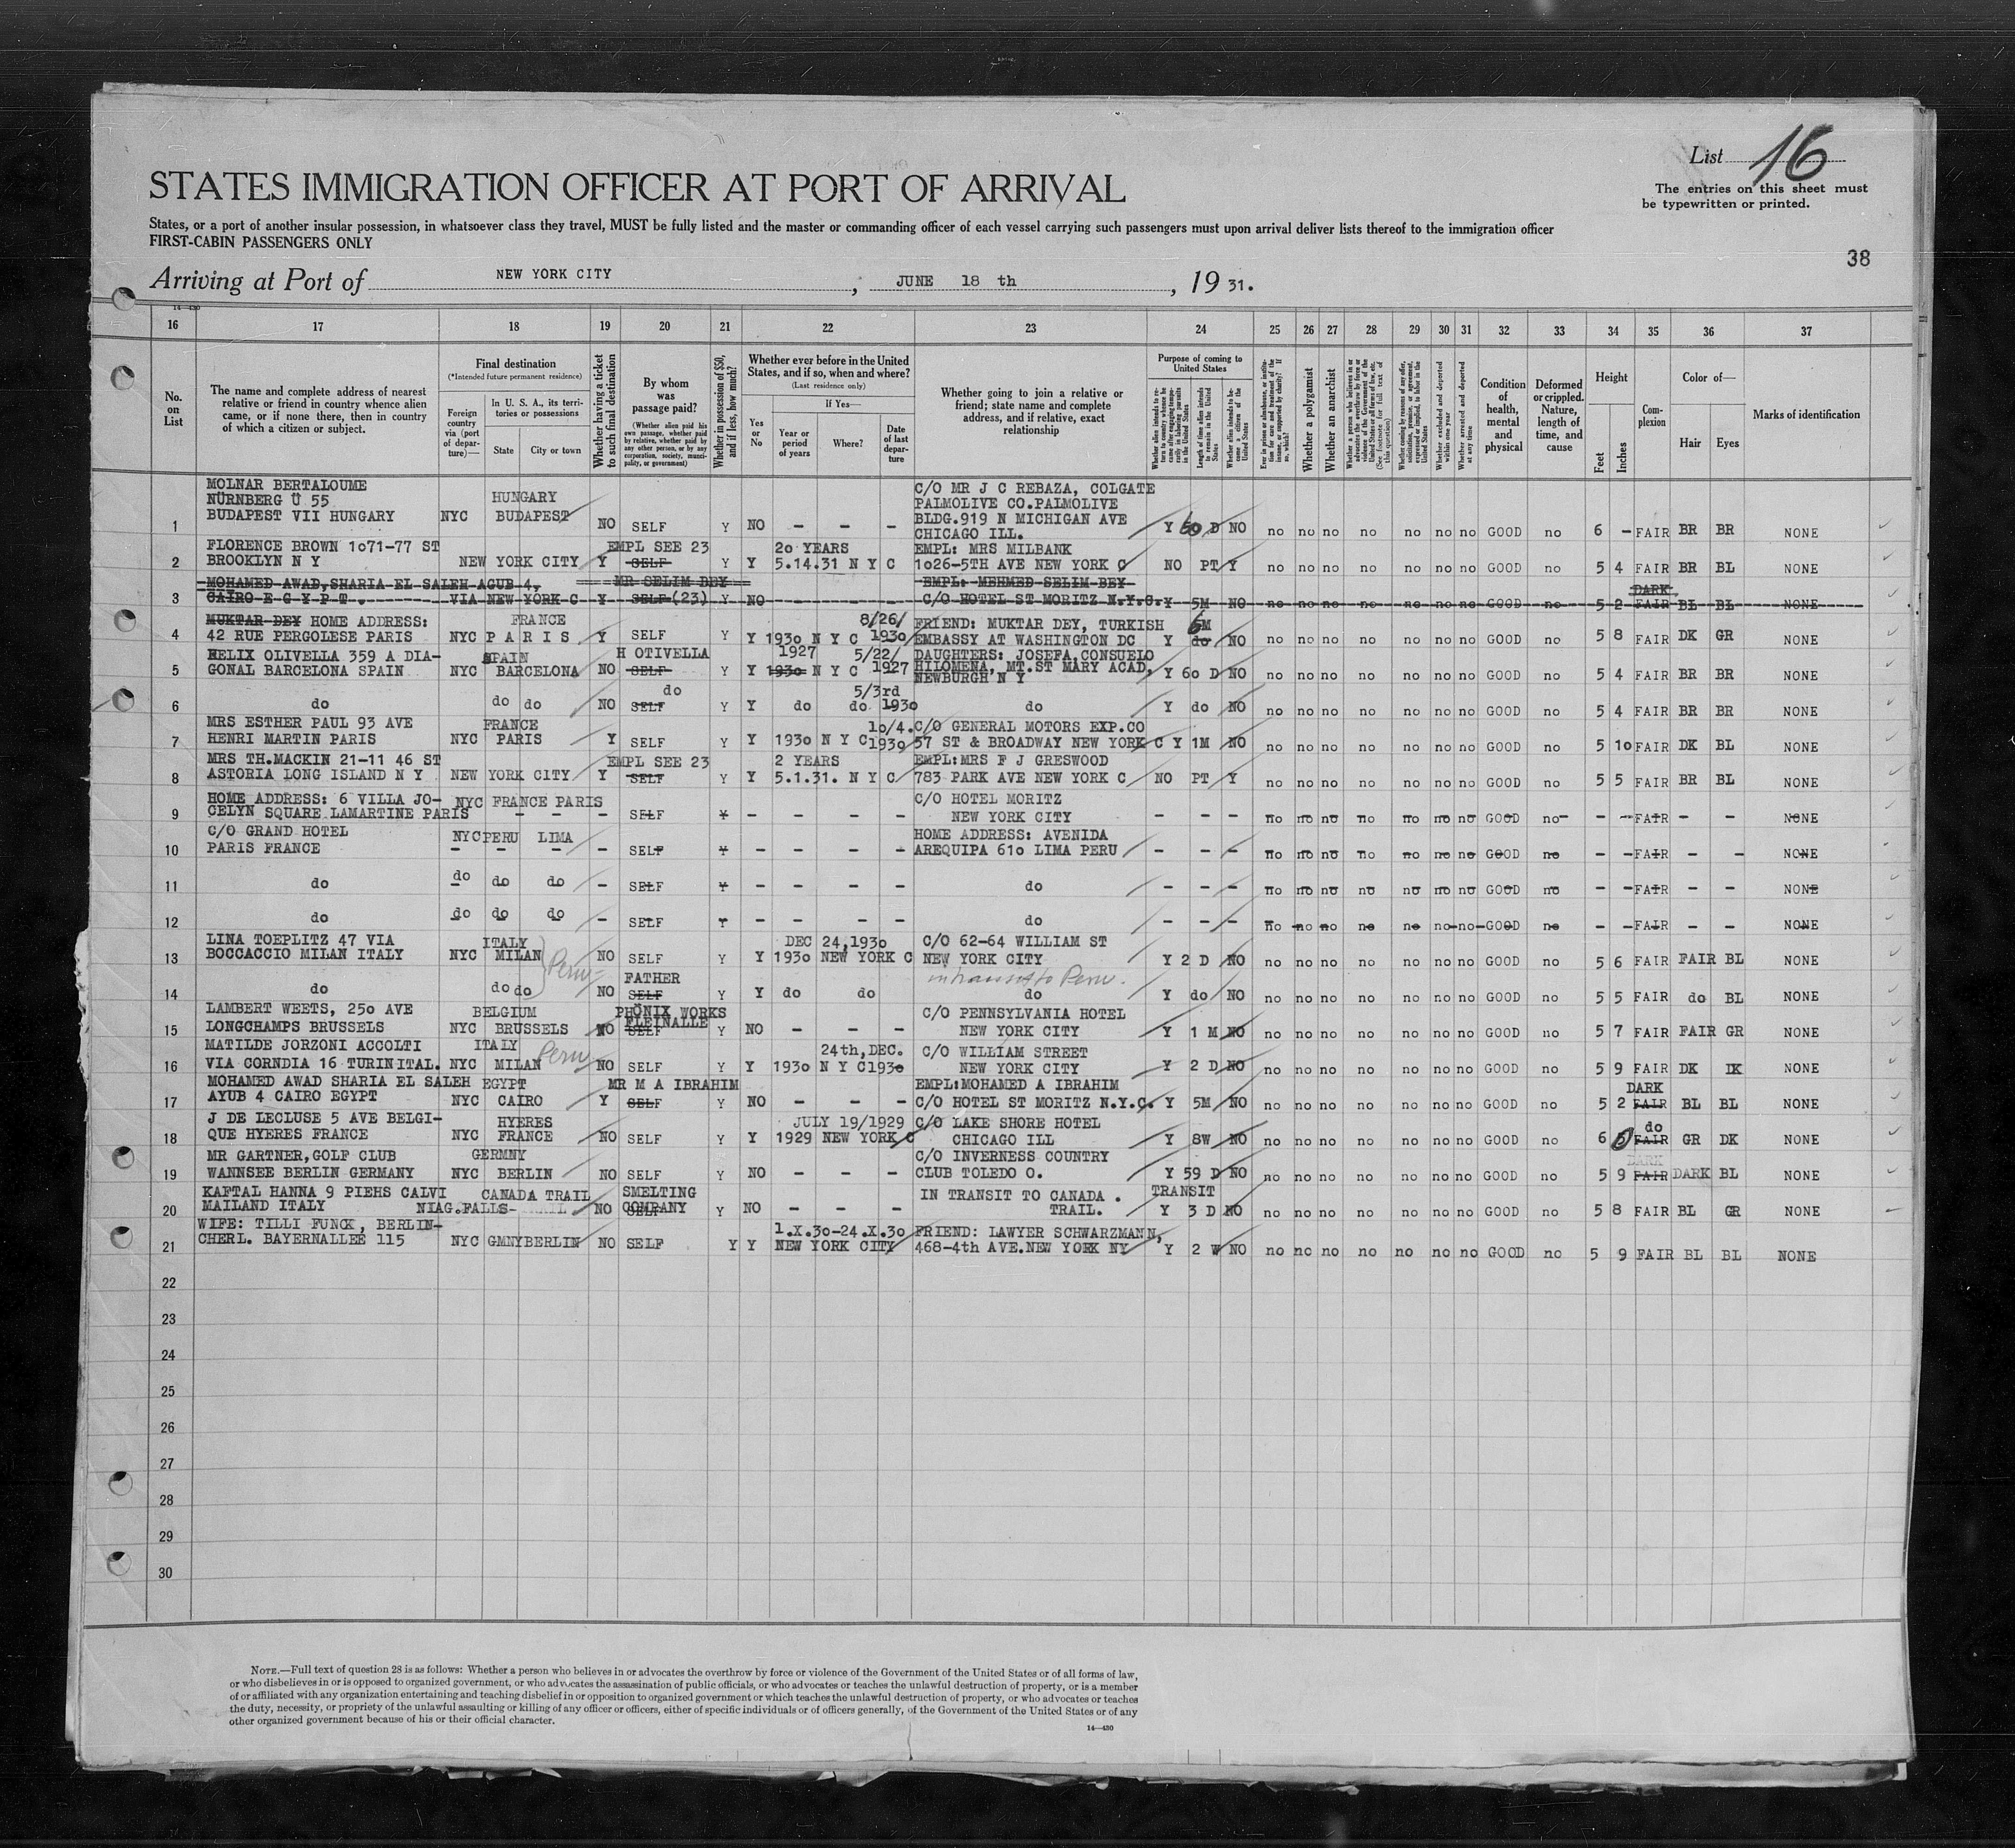 List 16
The entries on this sheet must
be typewritten or printed.
STATES IMMIGRATION OFFICER AT PORT OF ARRIVAL
States, or a port of another insular possession, in whatsoever class they travel, MUST be fully listed and the master or commanding officer of each vessel carrying such passengers must upon arrival deliver lists thereof to the immigration officer
FIRST-CABIN PASSENGERS ONLY
38
Arriving at Port of NEW YORK CITY, JUNE 18 th, 19 31.
14—430
16 17 18 19 20 21 22 23 24 25 26 27 28 29 30 31 32 33 34 35 36 37
No. on List
The name and complete address of nearest relative or friend in country whence alien came, or if none there, then in country of which a citizen or subject.
Final destination
(*Intended future permanent residence)
Foreign country via (port of departure)—
In U. S. A., its territories or possessions
State
City or town
Whether having a ticket to such final destination
By whom was passage paid?
(Whether alien paid his own passage, whether paid by relative, whether paid by any other person, or by any corporation, society, municipality, or government)
Whether in possession of $50, and if less, how much?
Whether ever before in the United States, and if so, when and where?
(Last residence only)
If Yes—
Yes or No
Year or period of years
Where?
Date of last departure
Whether going to join a relative or friend; state name and complete address, and if relative, exact relationship
Purpose of coming to United States
Length of time alien intends to remain in the United States
Whether alien intends to become a citizen of the United States
Whether a polygamist
Whether an anarchist
Whether excluded and deported within one year
Whether arrested and deported at any time
Condition of health, mental and physical
Deformed or crippled. Nature, length of time, and cause
Height
Feet
Inches
Complexion
Color of—
Hair
Eyes
Marks of identification
MOLNAR BERTALOUME C/O MR J C REBAZA, COLGATE
NÜRNBERG Ü 55 HUNGARY PALMOLIVE CO.PALMOLIVE
BUDAPEST VII HUNGARY NYC BUDAPEST BLDG.919 N MICHIGAN AVE
1 NO SELF Y NO – – – CHICAGO ILL. Y 60 D NO no no no no no no no GOOD no 6 – FAIR BR BR NONE
FLORENCE BROWN 1071-77 ST EMPL SEE 23 20 YEARS EMPL: MRS MILBANK
2 BROOKLYN N Y NEW YORK CITY Y SELF Y Y 5.14.31 N Y C 1026-5TH AVE NEW YORK C NO PT Y no no no no no no no GOOD no 5 4 FAIR BR BL NONE
MOHAMED AWAD,SHARIA EL SALEH AGUB 4, MR SELIM BEY EMPL: MEHMED SELIM BEY DARK
3 CAIRO E G Y P T . VIA NEW YORK C Y SELF (23) Y NO C/O HOTEL ST MORITZ N.Y.C. Y 5M NO no no no no no no no GOOD no 5 2 FAIR BL BL NONE
MUKTAR DEY HOME ADDRESS: FRANCE 8/26/ FRIEND: MUKTAR DEY, TURKISH 6M
4 42 RUE PERGOLESE PARIS NYC P A R I S Y SELF Y Y 1930 N Y C 1930 EMBASSY AT WASHINGTON DC Y do NO no no no no no no no GOOD no 5 8 FAIR DK GR NONE
HELIX OLIVELLA 359 A DIA- SPAIN H OTIVELLA 1927 5/22/ DAUGHTERS: JOSEFA,CONSUELO
5 GONAL BARCELONA SPAIN NYC BARCELONA NO SELF Y Y 1930 N Y C 1927 HILOMENA, MT.ST MARY ACAD, Y 60 D NO no no no no no no no GOOD no 5 4 FAIR BR BR NONE
NEWBURGH N Y
do 5/3rd
6 do do do NO SELF Y Y do do 1930 do Y do NO no no no no no no no GOOD no 5 4 FAIR BR BR NONE
MRS ESTHER PAUL 93 AVE FRANCE 10/4. C/O GENERAL MOTORS EXP.CO
7 HENRI MARTIN PARIS NYC PARIS Y SELF Y Y 1930 N Y C 1930 57 ST & BROADWAY NEW YORK C Y 1M NO no no no no no no no GOOD no 5 10 FAIR DK BL NONE
MRS TH.MACKIN 21-11 46 ST EMPL SEE 23 2 YEARS EMPL:MRS F J GRESWOOD
8 ASTORIA LONG ISLAND N Y NEW YORK CITY Y SELF Y Y 5.1.31. N Y C 783 PARK AVE NEW YORK C NO PT Y no no no no no no no GOOD no 5 5 FAIR BR BL NONE
HOME ADDRESS: 6 VILLA JO- NYC FRANCE PARIS C/O HOTEL MORITZ
9 CELYN SQUARE LAMARTINE PARIS – – – SELF Y – – – – NEW YORK CITY – – – no no no no no no no GOOD no – – FAIR – – NONE
C/O GRAND HOTEL NYC PERU LIMA HOME ADDRESS: AVENIDA
10 PARIS FRANCE – – – – SELF Y – – – – AREQUIPA 610 LIMA PERU – – – no no no no no no no GOOD no – – FAIR – – NONE
11 do do do do – SELF Y – – – – do – – – no no no no no no no GOOD no – – FAIR – – NONE
12 do do do do – SELF Y – – – – do – – – no no no no no no no GOOD no – – FAIR – – NONE
LINA TOEPLITZ 47 VIA ITALY DEC 24,1930 C/O 62-64 WILLIAM ST
13 BOCCACCIO MILAN ITALY NYC MILAN Peru NO SELF Y Y 1930 NEW YORK C NEW YORK CITY Y 2 D NO no no no no no no no GOOD no 5 6 FAIR FAIR BL NONE
FATHER in transit to Peru.
14 do do do NO SELF Y Y do do do Y do NO no no no no no no no GOOD no 5 5 FAIR do BL NONE
LAMBERT WEETS, 250 AVE BELGIUM PHÖNIX WORKS C/O PENNSYLVANIA HOTEL
FLEINALLE
15 LONGCHAMPS BRUSSELS NYC BRUSSELS NO SELF Y NO – – – NEW YORK CITY Y 1 M NO no no no no no no no GOOD no 5 7 FAIR FAIR GR NONE
MATILDE JORZONI ACCOLTI ITALY Peru 24th,DEC. C/O WILLIAM STREET
16 VIA CORNDIA 16 TURINITAL. NYC MILAN NO SELF Y Y 1930 N Y C 1930 NEW YORK CITY Y 2 D NO no no no no no no no GOOD no 5 9 FAIR DK DK NONE
MOHAMED AWAD SHARIA EL SALEH EGYPT MR M A IBRAHIM EMPL:MOHAMED A IBRAHIM DARK
17 AYUB 4 CAIRO EGYPT NYC CAIRO Y SELF Y NO – – – C/O HOTEL ST MORITZ N.Y.C. Y 5M NO no no no no no no no GOOD no 5 2 FAIR BL BL NONE
J DE LECLUSE 5 AVE BELGI- HYERES JULY 19/1929 C/O LAKE SHORE HOTEL do
18 QUE HYERES FRANCE NYC FRANCE NO SELF Y Y 1929 NEW YORK C CHICAGO ILL Y 8W NO no no no no no no no GOOD no 6 0 FAIR GR DK NONE
MR GARTNER,GOLF CLUB GERMNY C/O INVERNESS COUNTRY DARK
19 WANNSEE BERLIN GERMANY NYC BERLIN NO SELF Y NO – – – CLUB TOLEDO O. Y 59 D NO no no no no no no no GOOD no 5 9 FAIR DARK BL NONE
KAFTAL HANNA 9 PIEHS CALVI CANADA TRAIL SMELTING IN TRANSIT TO CANADA . TRANSIT
20 MAILAND ITALY NIAG.FALLS- NO COMPANY SELF Y NO – – – TRAIL. Y 3 D NO no no no no no no no GOOD no 5 8 FAIR BL GR NONE
WIFE: TILLI FUNCK, BERLIN- 1.X.30-24.X.30 FRIEND: LAWYER SCHWARZMANN,
21 CHERL. BAYERNALLEE 115 NYC GMNY BERLIN NO SELF Y Y NEW YORK CITY 468-4th AVE.NEW YORK NY Y 2 W NO no no no no no no no GOOD no 5 9 FAIR BL BL NONE
22
23
24
25
26
27
28
29
30
NOTE.—Full text of question 28 is as follows: Whether a person who believes in or advocates the overthrow by force or violence of the Government of the United States or of all forms of law,
or who disbelieves in or is opposed to organized government, or who advocates the assassination of public officials, or who advocates or teaches the unlawful destruction of property, or is a member
of or affiliated with any organization entertaining and teaching disbelief in or opposition to organized government or which teaches the unlawful destruction of property, or who advocates or teaches
the duty, necessity, or propriety of the unlawful assaulting or killing of any officer or officers, either of specific individuals or of officers generally, of the Government of the United States or of any
other organized government because of his or their official character.
14—430